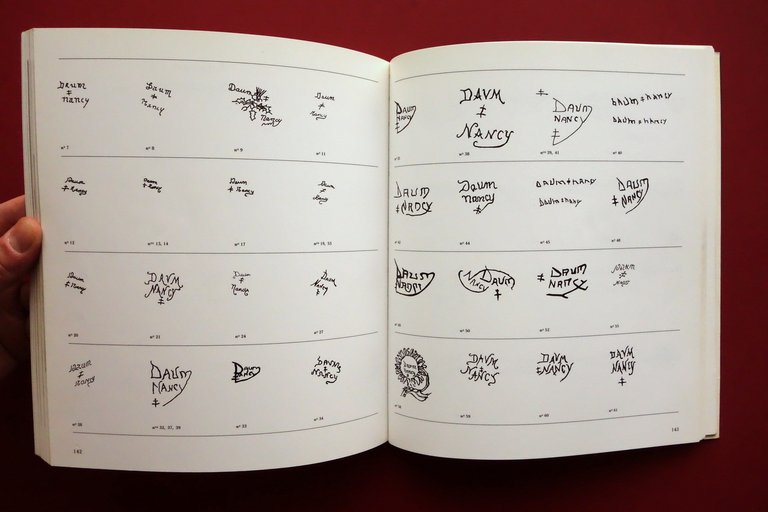 Daum
‡
Nancy
n° 7
Daum
‡
Nancy
n° 8
Daum
‡
Nancy
n° 9
Daum
‡
Nancy
n° 11
Daum
‡ Nancy
n° 12
Daum
‡ Nancy
nos 13, 14
Daum
‡ Nancy
n° 17
Daum
‡
Nancy
Daum
‡ Nancy
n° 20
DAUM
NANCY
‡
n° 21
Daum
‡
Nancy
n° 24
Daum
Nancy
n° 27
Daum
‡
Nancy
DAUM
NANCY
‡
DAUM
n° 33
DAUM
‡
NANCY
n° 34
142
DAUM
NANCY
DAVM
‡
NANCY
n° 38
‡
DAUM
NANCY
‡
nos 39, 41
DAUM ‡ NANCY
DAUM ‡ NANCY
n° 40
DAUM
‡ NANCY
n° 42
Daum
nancy
‡
n° 44
DAUM ‡ NANCY
Daum ‡ nancy
n° 45
DAUM
‡ NANCY
n° 46
DAUM
NANCY
NANCY DAUM
‡
n° 50
‡ DAUM
NANCY
n° 52
DAUM
‡
NANCY
n° 55
n° 58
DAVM
‡
NANCY
n° 59
DAVM
‡ NANCY
n° 60
DAVM
NANCY
‡
n° 61
143